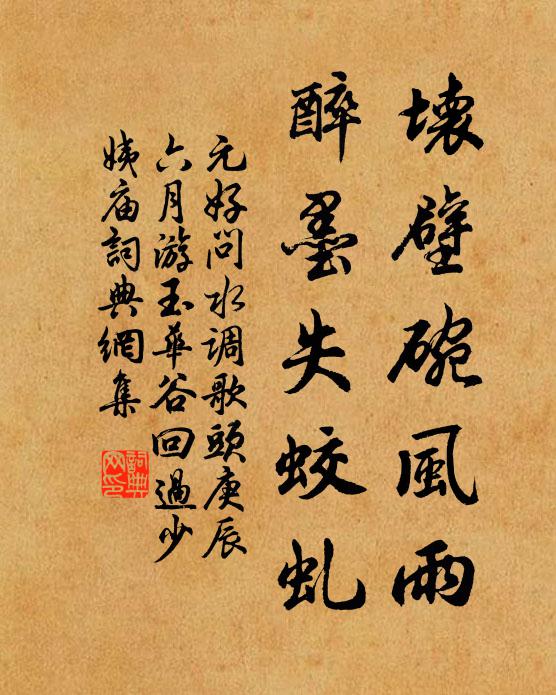 壊壁碗風雨
醉墨失蛟虬
元好问水调歌頭庚辰
六月游玉華谷回過少
姨庙詞典網集
詞典网印